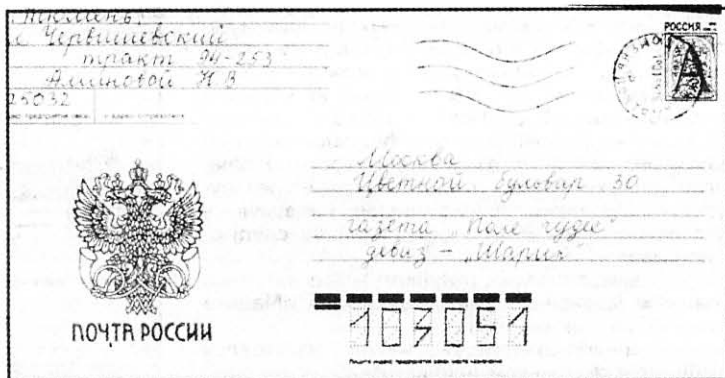 г. Тюмень
ул. Червишевский
тракт 94-253
Аминовой Н В
625032
РОССИЯ
А
Москва
Цветной бульвар 30
газета "Поле чудес"
девиз - "Шарик"
ПОЧТА РОССИИ
103051